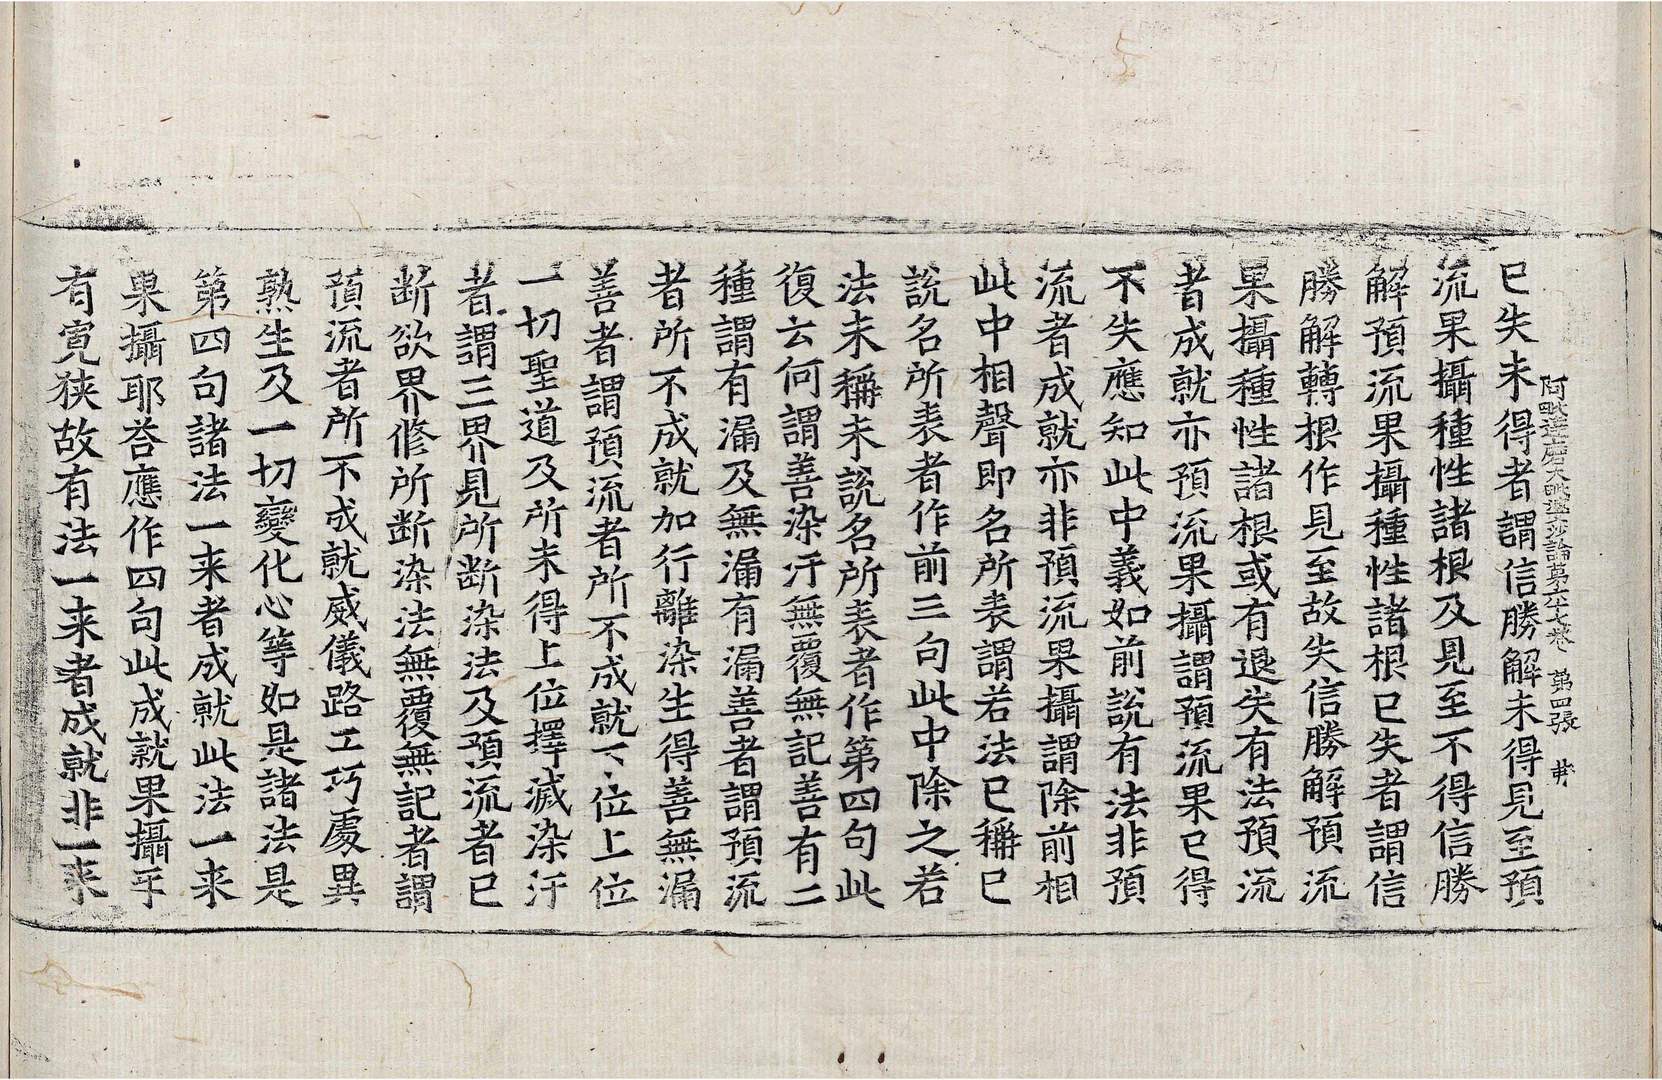 阿毗達磨大毗婆沙論第六十七卷 第四張
已失未得者謂信勝解未得見至預
流果攝種性諸根及見至不得信勝
解預流果攝種性諸根已失者謂信
勝解轉根作見至故失信勝解預流
果攝種性諸根或有退失有法預流
者成就亦預流果攝謂預流果已得
不失應知此中義如前說有法非預
流者成就亦非預流果攝謂除前相
此中相聲即名所表謂若法已稱已
說名所表者作前三句此中除之若
法未稱未說名所表者作第四句此
復云何謂善染汙無覆無記善有二
種謂有漏及無漏有漏善者謂預流
者所不成就加行離染生得善無漏
善者謂預流者所不成就下位上位
一切聖道及所未得上位擇滅染汙
者謂三界見所斷染法及預流者已
斷欲界修所斷染法無覆無記者謂
預流者所不成就威儀路工巧處異
熟生及一切變化心等如是諸法是
第四句諸法一来者成就此法一来
果攝耶荅應作四句此成就果攝互
有寬狹故有法一来者成就非一来